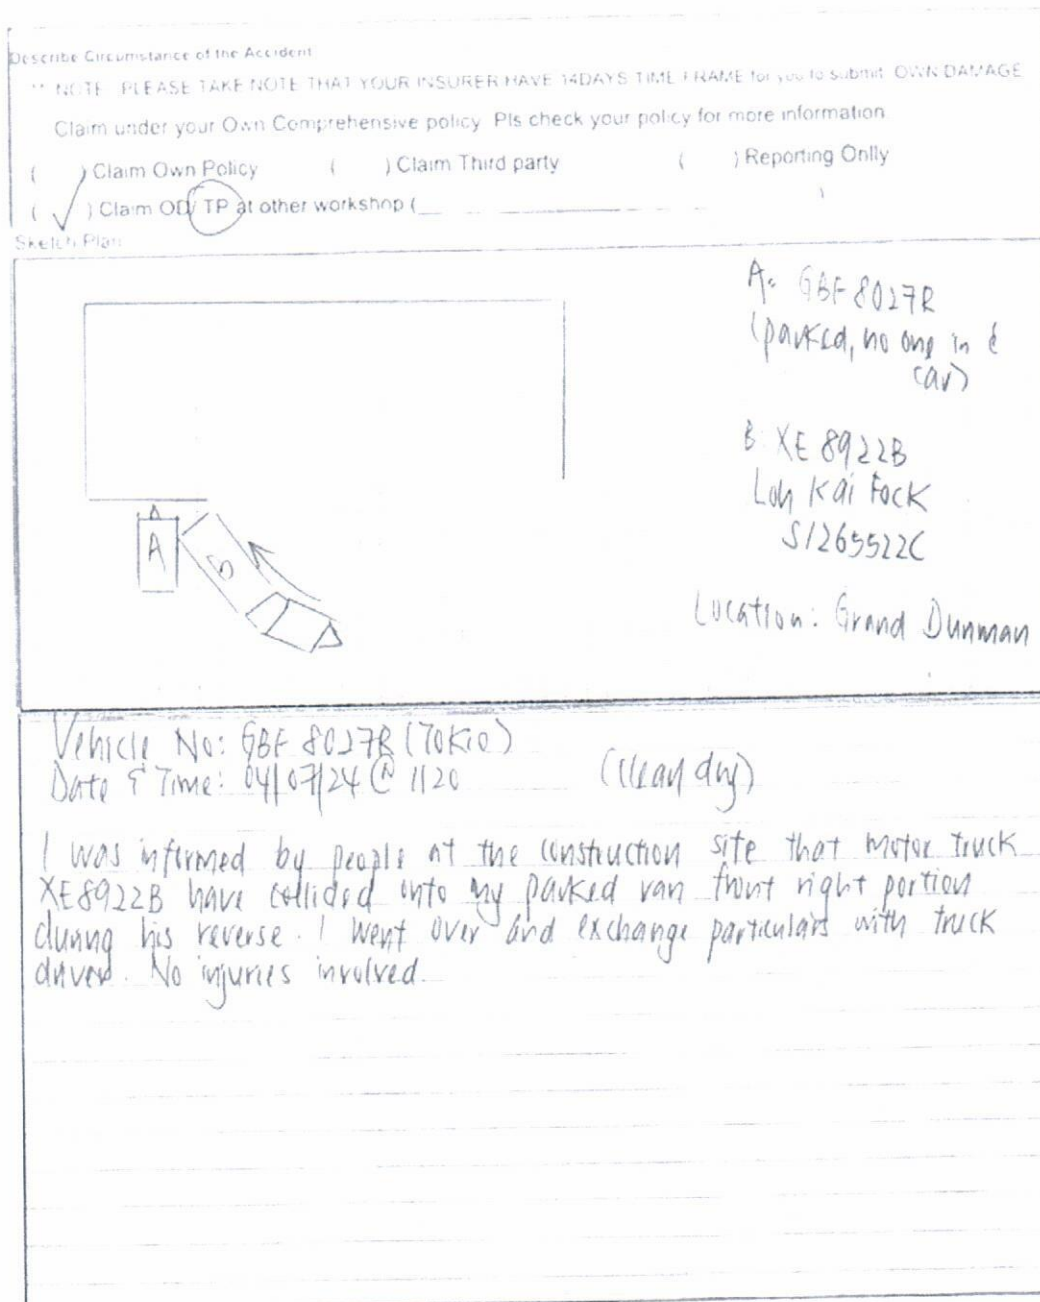 Describe Circumstance of the Accident
** NOTE : PLEASE TAKE NOTE THAT YOUR INSURER HAVE 14DAYS TIME FRAME for you to submit OWN DAMAGE
Claim under your Own Comprehensive policy. Pls check your policy for more information
( ) Claim Own Policy ( ) Claim Third party ( ) Reporting Onlly
( ✓ ) Claim OD/ TP at other workshop ( )
Sketch Plan
A: GBF 8027R
(parked, no one in
car)
B: XE 8922B
Loh Kai Fock
S1265522C
Location: Grand Dunman
A
B
Vehicle No: GBF 8027R (Tokio)
Date & Time: 04/07/24 @ 1120 (Clean dry)
I was informed by people at the construction site that motor truck
XE8922B have collided onto my parked van front right portion
during his reverse. I went over and exchange particulars with truck
driver. No injuries involved.